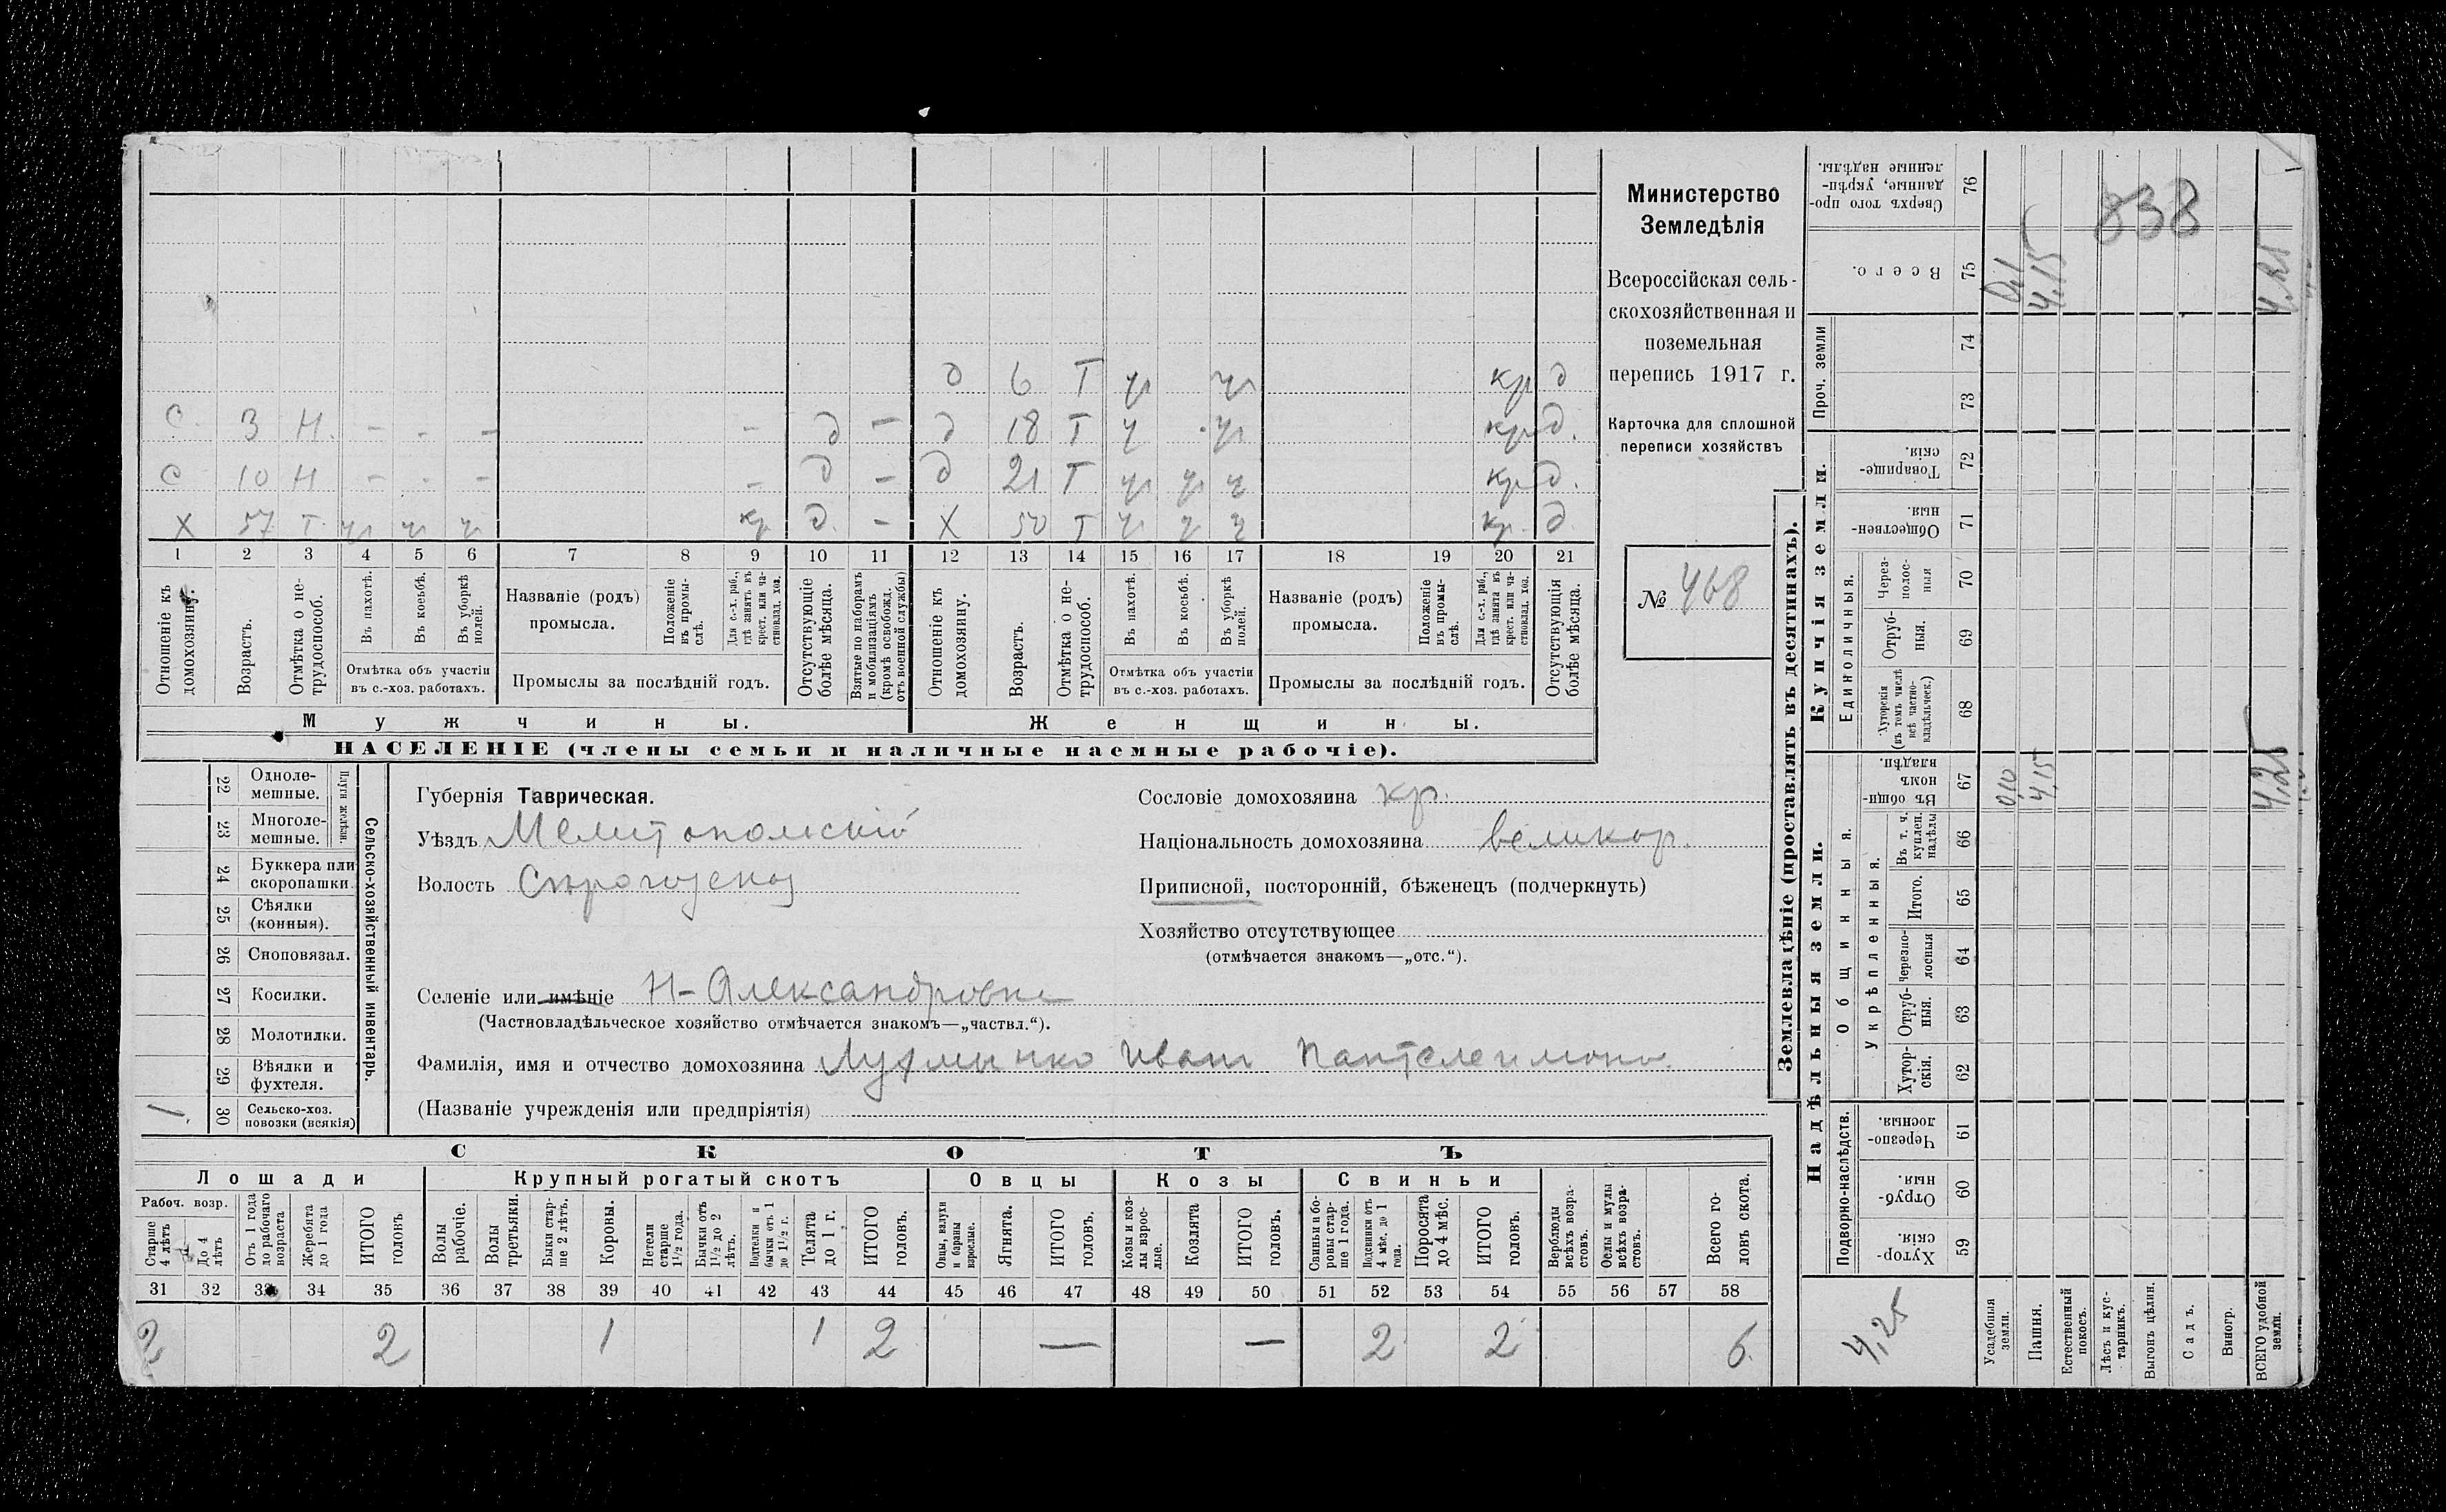 Министерство
Земледѣлія
Всероссійская сель-
скохозяйственная и
поземельная
перепись 1917 г.
Карточка для сплошной
переписи хозяйствъ
№ 468
838
д 6 Т ч ч кр д
С. 3 Н. - - - - д - д 18 Т ч ч кр д.
С 10 Н - - - - д - д 21 Т ч ч ч кр д.
Х 57 Т. ч ч ч кр д. - Х 50 Т ч ч ч кр. д.
1 2 3 4 5 6 7 8 9 10 11 12 13 14 15 16 17 18 19 20 21
Отношеніе къ домохозяину.
Возрастъ.
Отмѣтка о не-трудоспособ.
Въ пахотѣ.
Въ косьбѣ.
Въ уборкѣ полей.
Отмѣтка объ участіи
въ с.-хоз. работахъ.
Названіе (родъ)
промысла.
Положеніе въ промы-слѣ.
Для с.-х. раб., гдѣ занятъ въ крест. или ча-ствовлад. хоз.
Промыслы за послѣдній годъ.
Отсутствующіе болѣе мѣсяца.
Взятые по наборамъ и мобилизаціямъ (кромѣ освобожд. отъ военной службы)
Отношеніе къ домохозяину.
Возрастъ.
Отмѣтка о не-трудоспособ.
Въ пахотѣ.
Въ косьбѣ.
Въ уборкѣ полей.
Отмѣтка объ участіи
въ с.-хоз. работахъ.
Названіе (родъ)
промысла.
Положеніе въ промы-слѣ.
Для с.-х. раб., гдѣ занята въ крест. или ча-ствовлад. хоз.
Промыслы за послѣдній годъ.
Отсутствующія болѣе мѣсяца.
Мужчины. Женщины.
НАСЕЛЕНІЕ (члены семьи и наличные наемные рабочіе).
Сельско-хозяйственный инвентарь.
Плуги желѣзн.
22 Одноле-мешные.
23 Многоле-мешные.
24 Буккера или скоропашки
25 Сѣялки (конныя).
26 Сноповязал.
27 Косилки.
28 Молотилки.
29 Вѣялки и фухтеля.
1 30 Сельско-хоз. повозки (всякія)
Губернія Таврическая.
Уѣздъ Мелитопольскій
Волость Сѣрогозская
Селеніе или имѣніе Н-Александровка
(Частновладѣльческое хозяйство отмѣчается знакомъ—„частвл.“).
Фамилія, имя и отчество домохозяина Иван Пантелеимоно.
(Названіе учрежденія или предпріятія)
Сословіе домохозяина кр.
Національность домохозяина великор.
Приписной, посторонній, бѣженецъ (подчеркнуть)
Хозяйство отсутствующее
(отмѣчается знакомъ—„отс.“).
СКОТЪ
Лошади Крупный рогатый скотъ Овцы Козы Свиньи
Рабоч. возр.
Старше 4 лѣтъ
До 4 лѣтъ
Отъ 1 года до рабочаго возраста
Жеребята до 1 года
ИТОГО головъ
Волы рабочіе.
Волы третьяки.
Быки стар-ше 2 лѣтъ.
Коровы.
Нетели старше 1½ года.
Бычки отъ 1½ до 2 лѣтъ.
Подтелки и бычки отъ 1 до 1½ г.
Телята до 1 г.
ИТОГО головъ.
Овцы, валухи и бараны взрослые.
Ягнята.
ИТОГО головъ.
Козы и коз-лы взрос-лые.
Козлята
ИТОГО головъ.
Свиньи и бо-ровы стар-ше 1 года.
Подсвинки отъ 4 мѣс. до 1 года.
Поросята до 4 мѣс.
ИТОГО головъ.
Верблюды всѣхъ возра-стовъ.
Ослы и мулы всѣхъ возра-стовъ.
Всего го-ловъ скота.
31 32 33 34 35 36 37 38 39 40 41 42 43 44 45 46 47 48 49 50 51 52 53 54 55 56 57 58
2 2 1 1 2 — — 2 2 6
Землевладѣніе (проставлять въ десятинахъ).
Надѣльныя земли. Купчія земли. Проч. земли
Подворно-наслѣдств.
Общинныя.
Укрѣпленныя.
Единоличныя.
Хутор-скія. 59
Отруб-ныя. 60
Черезпо-лосныя. 61
Хутор-скія. 62
Отруб-ныя. 63
Черезпо-лосныя 64
Итого. 65
Въ т. ч. куплен. надѣлы 66
Въ общи-номъ владѣн. 67
Хуторскія (въ томъ числѣ всѣ частно-владѣльческ.) 68
Отруб-ныя. 69
Через-полос-ныя 70
Обществен-ныя. 71
Товарище-скія. 72
73
74
Всего. 75
Сверхъ того про-данные, укрѣп-ленные надѣлы. 76
Усадебныя земли. 0,10 0,1
Пашня. 4,15 4,15
Естественный покосъ.
Лѣсъ и кус-тарникъ.
Выгонъ цѣлин.
Садъ.
Виногр.
ВСЕГО удобной земли. 4,25 4,25
4,25